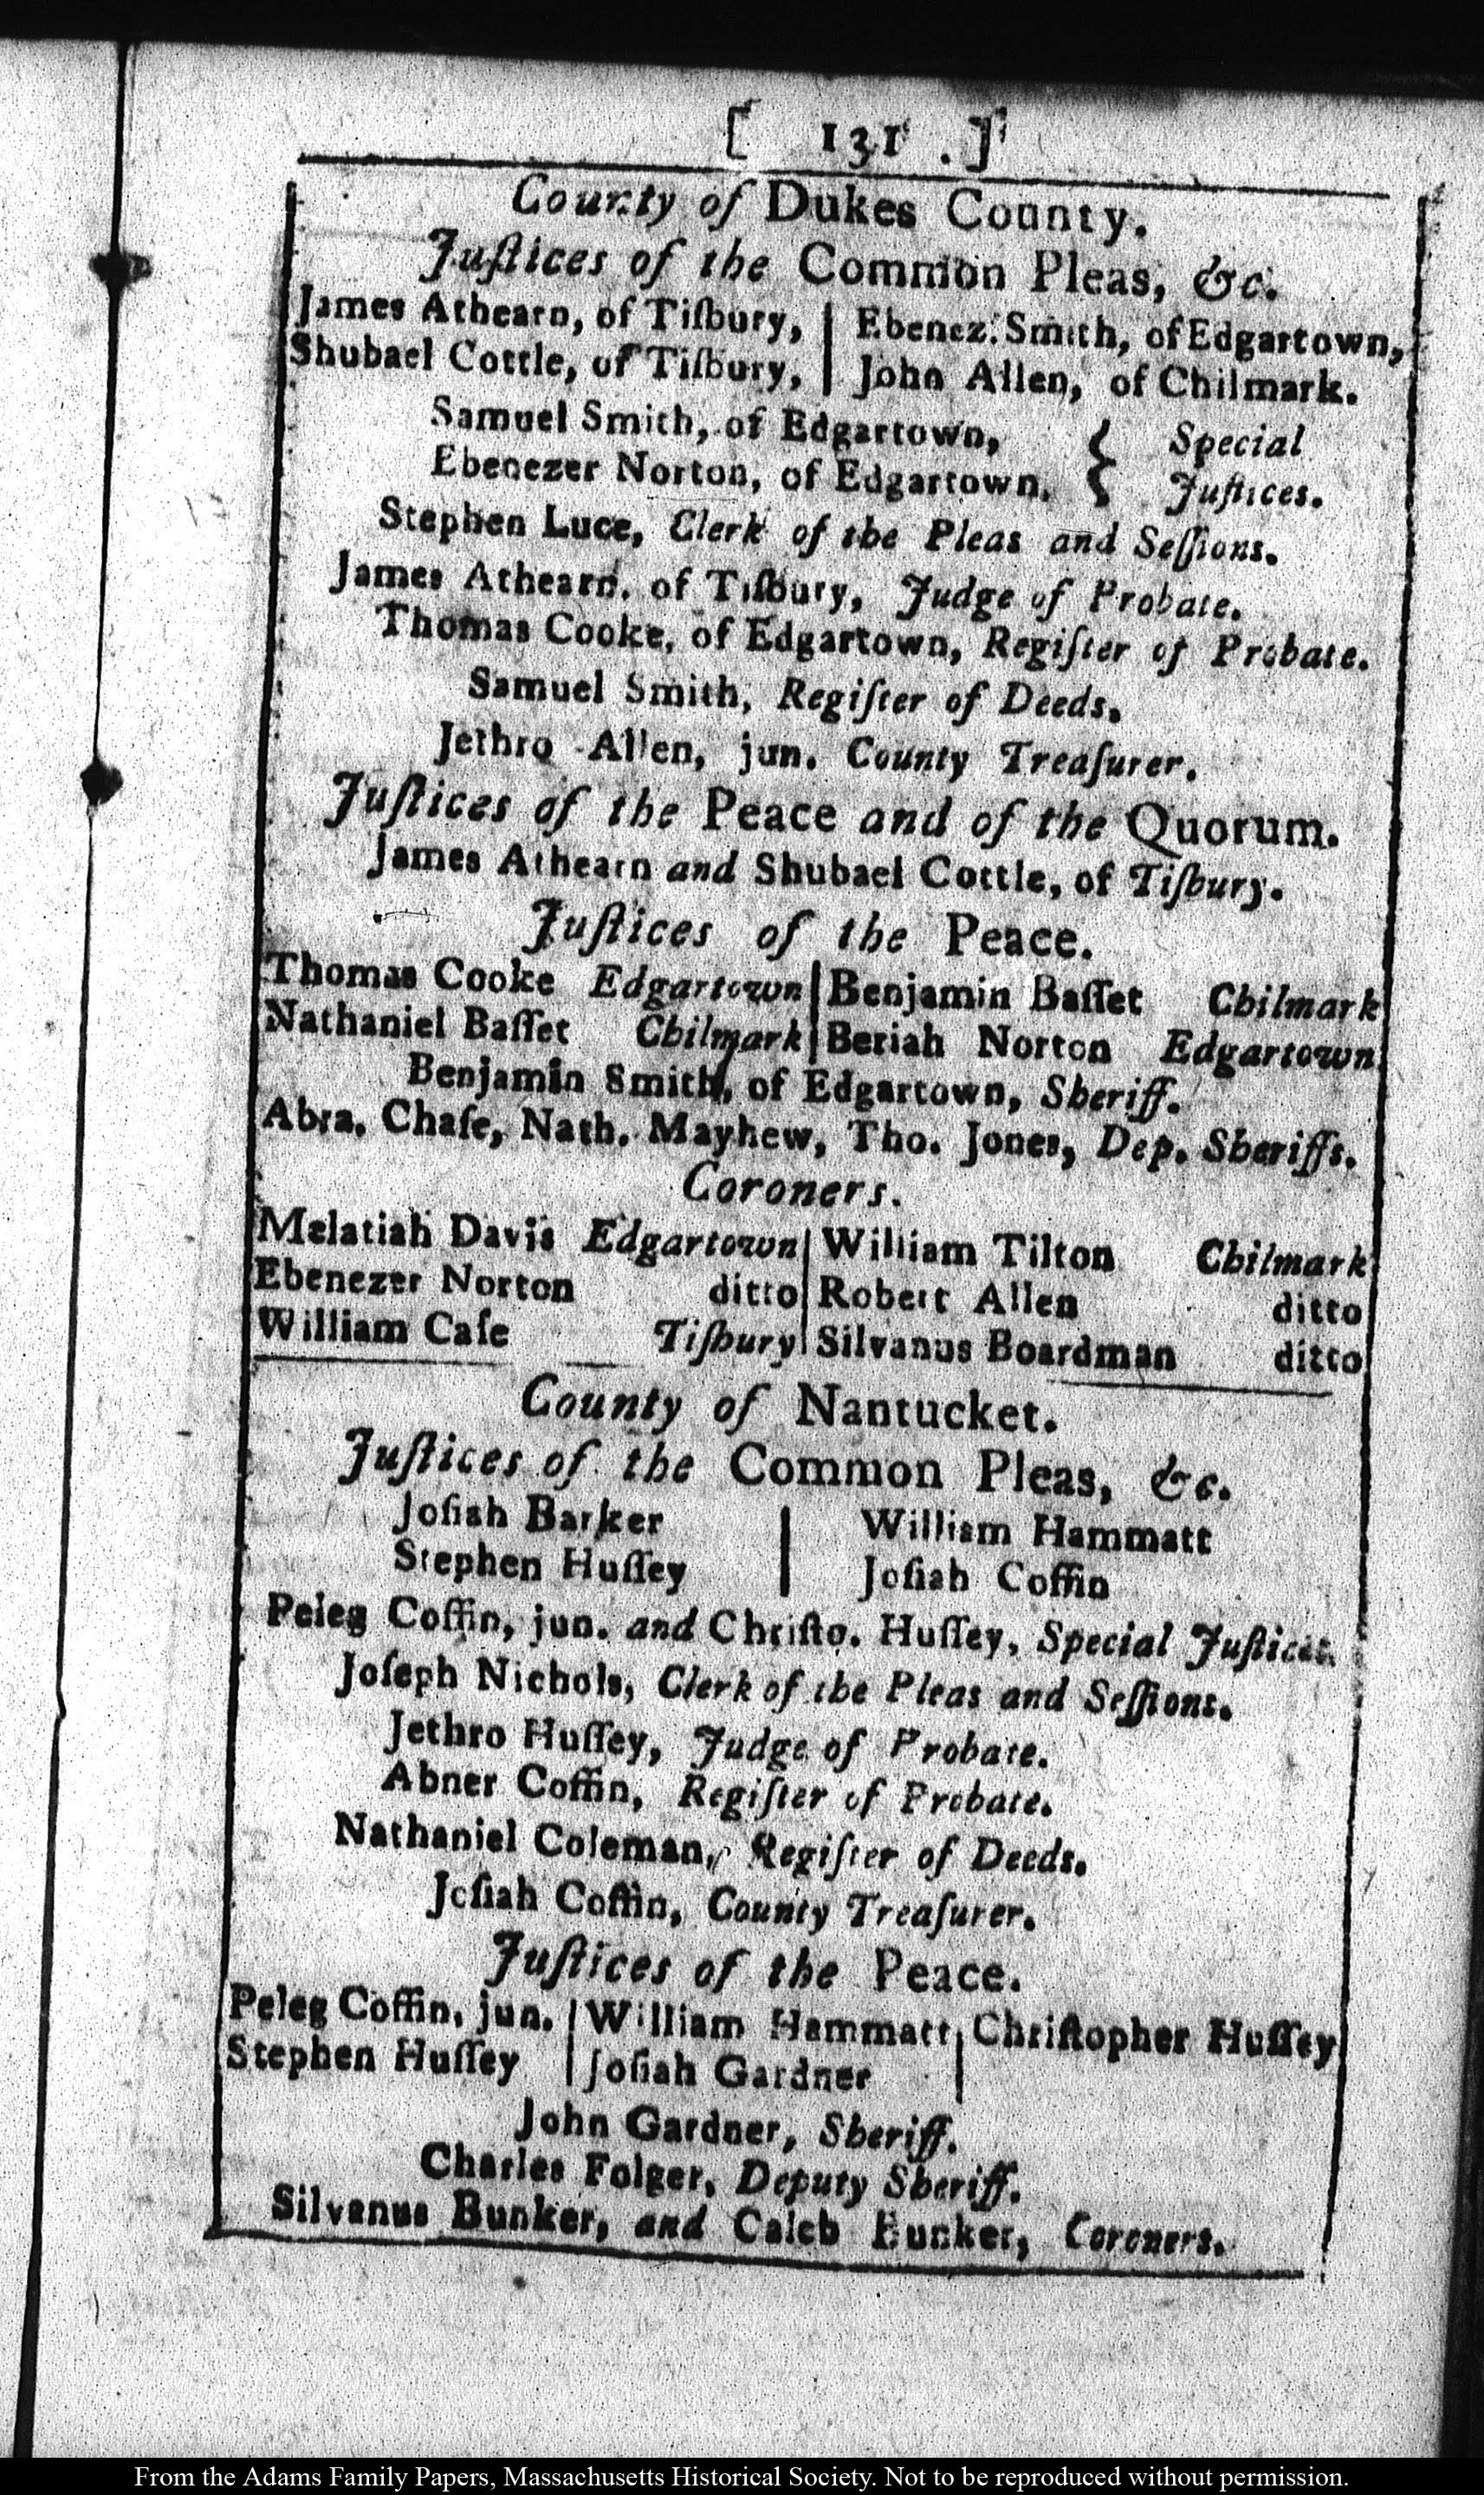 [ 131 . ]
County of Dukes County.
Juſtices of the Common Pleas, &c.
James Athearn, of Tiſbury, | Ebenez. Smith, of Edgartown,
Shubael Cottle, of Tiſbury, | John Allen, of Chilmark.
Samuel Smith, of Edgartown, } Special
Ebenezer Norton, of Edgartown. } Juſtices.
Stephen Luce, Clerk of the Pleas and Seſſions.
James Athearn. of Tiſbury, Judge of Probate.
Thomas Cooke, of Edgartown, Regiſter of Probate.
Samuel Smith, Regiſter of Deeds.
Jethro Allen, jun. County Treaſurer.
Juſtices of the Peace and of the Quorum.
James Athearn and Shubael Cottle, of Tiſbury.
Juſtices of the Peace.
Thomas Cooke Edgartown | Benjamin Baſſet Chilmark
Nathaniel Baſſet Chilmark | Beriah Norton Edgartown
Benjamin Smith, of Edgartown, Sheriff.
Abra. Chaſe, Nath. Mayhew, Tho. Jones, Dep. Sheriffs.
Coroners.
Melatiah Davis Edgartown | William Tilton Chilmark
Ebenezer Norton ditto | Robert Allen ditto
William Caſe Tiſbury | Silvanus Boardman ditto
County of Nantucket.
Juſtices of the Common Pleas, &c.
Joſiah Barker | William Hammatt
Stephen Huſſey | Joſiah Coffin
Peleg Coffin, jun. and Chriſto. Huſſey, Special Juſtices.
Joſeph Nichols, Clerk of the Pleas and Seſſions.
Jethro Huſſey, Judge of Probate.
Abner Coffin, Regiſter of Probate.
Nathaniel Coleman, Regiſter of Deeds.
Joſiah Coffin, County Treaſurer.
Juſtices of the Peace.
Peleg Coffin, jun. | William Hammatt | Chriſtopher Huſſey
Stephen Huſſey | Joſiah Gardner |
John Gardner, Sheriff.
Charles Folger, Deputy Sheriff.
Silvanus Bunker, and Caleb Bunker, Coroners.
From the Adams Family Papers, Massachusetts Historical Society. Not to be reproduced without permission.